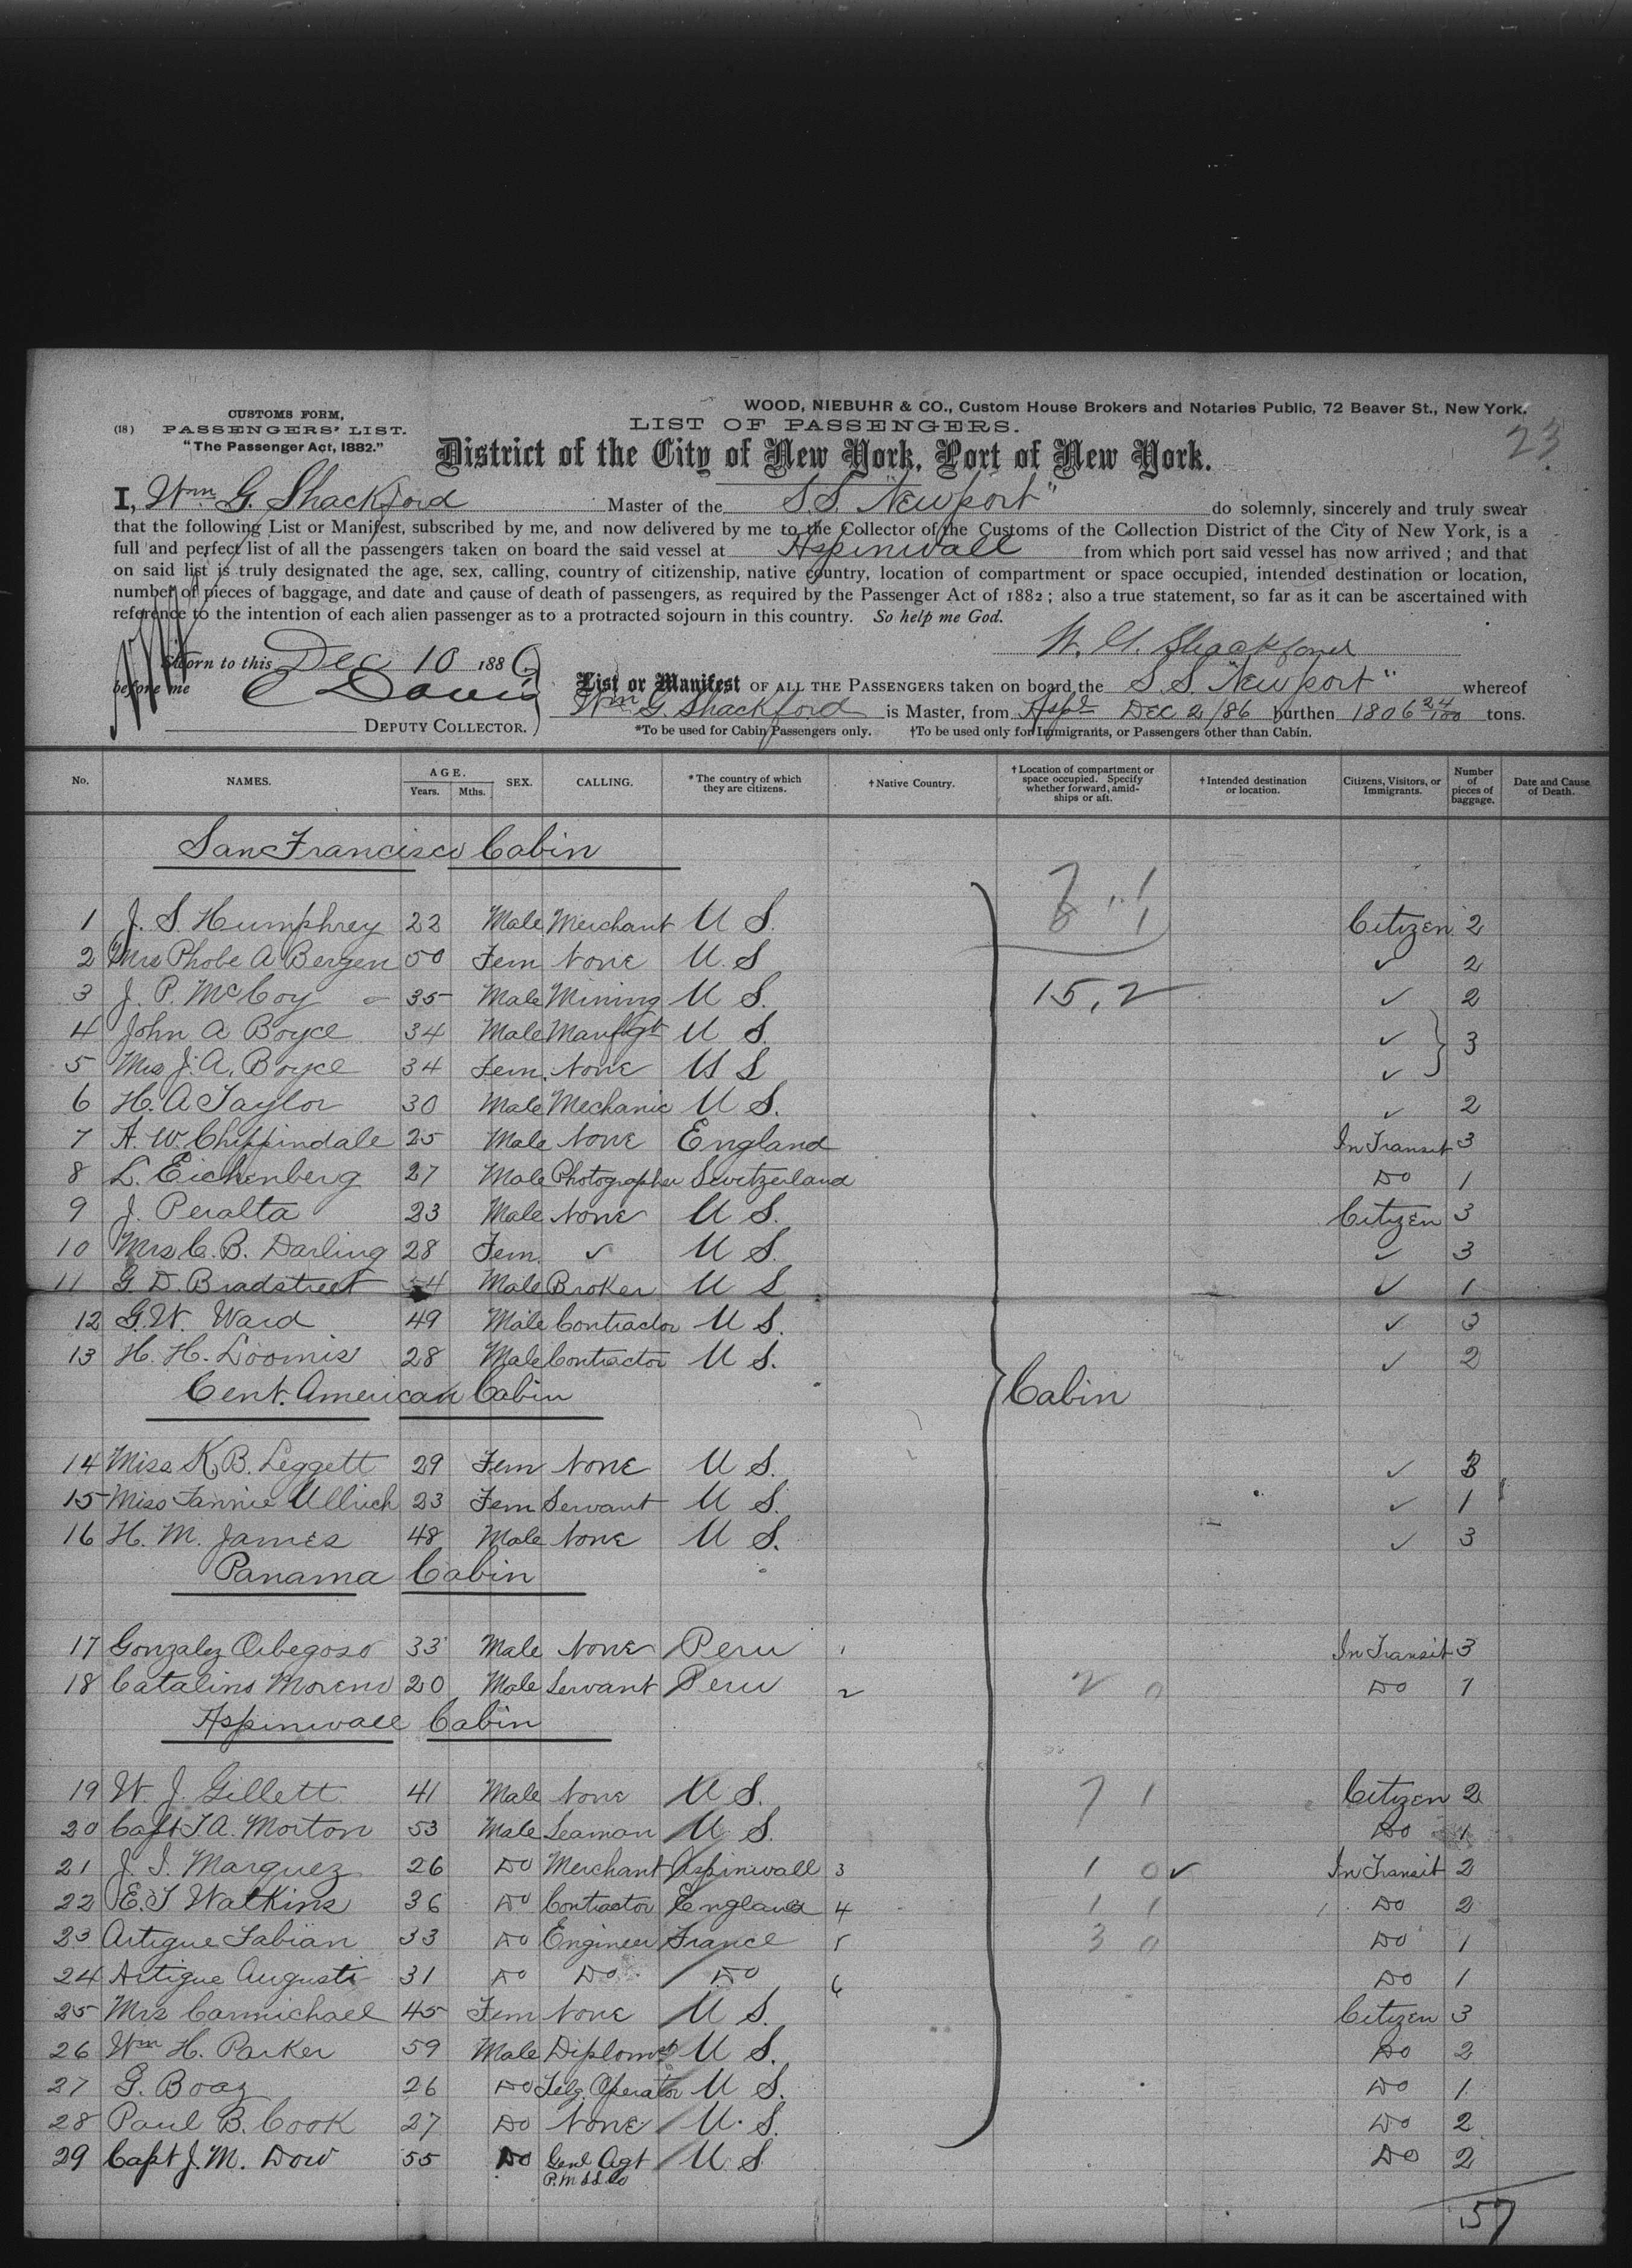 WOOD, NIEBUHR & CO., Custom House Brokers and Notaries Public, 72 Beaver St., New York.
CUSTOMS FORM,
(18) PASSENGERS' LIST.
"The Passenger Act, 1882."
LIST OF PASSENGERS.
23
District of the City of New York, Port of New York.
I, Wm G. Shackford Master of the S.S. "Newport" do solemnly, sincerely and truly swear
that the following List or Manifest, subscribed by me, and now delivered by me to the Collector of the Customs of the Collection District of the City of New York, is a
full and perfect list of all the passengers taken on board the said vessel at Aspinwall from which port said vessel has now arrived ; and that
on said list is truly designated the age, sex, calling, country of citizenship, native country, location of compartment or space occupied, intended destination or location,
number of pieces of baggage, and date and cause of death of passengers, as required by the Passenger Act of 1882 ; also a true statement, so far as it can be ascertained with
reference to the intention of each alien passenger as to a protracted sojourn in this country. So help me God.
W. G. Shackford
Sworn to this Dec 10 1886
before me C Davis
DEPUTY COLLECTOR.
List or Manifest OF ALL THE PASSENGERS taken on board the S.S. "Newport" whereof
Wm G. Shackford is Master, from Aspl Dec 2/86 burthen 1806 24/100 tons.
*To be used for Cabin Passengers only. †To be used only for Immigrants, or Passengers other than Cabin.
No. NAMES. AGE. Years. Mths. SEX. CALLING. *The country of which they are citizens. †Native Country. †Location of compartment or space occupied. Specify whether forward, amidships or aft. †Intended destination or location. Citizens, Visitors, or Immigrants. Number of pieces of baggage. Date and Cause of Death.
San Francisco Cabin
7 1
8 " 1
1 J. S. Humphrey 22 Male Merchant U S. Citizen 2
2 Mrs Phobe A Bergen 50 Fem None U. S ✓ 2
3 J. P. McCoy 35 Male Mining U S. 15,2 ✓ 2
4 John A Boyce 34 Male Manfgt U S. ✓ } 3
5 Mrs J. A. Boyce 34 Fem. None U S ✓
6 H. A Taylor 30 Male Mechanic U S. ✓ 2
7 A. W. Chippindale 25 Male None England In Transit 3
8 L. Eichenberg 27 Male Photographer Switzerland Do 1
9 J. Peralta 23 Male None U S. Citizen 3
10 Mrs C. B. Darling 28 Fem. ✓ U S. ✓ 3
11 G. D. Bradstreet 54 Male Broker U S ✓ 1
12 G. W. Ward 49 Male Contractor U S. ✓ 3
13 H. H. Loomis 28 Male Contractor U S. ✓ 2
Cent. American Cabin
Cabin
14 Miss K. B. Leggett 29 Fem None U S. ✓ 3
15 Miss Fannie Ullrich 23 Fem Servant U S. ✓ 1
16 H. M. James 48 Male None U S. ✓ 3
Panama Cabin
17 Gonzalez Orbegoso 33 Male None Peru 1 In Transit 3
18 Catalino Moreno 20 Male Servant Peru 2 2 0 Do 1
Aspinwall Cabin
19 W. J. Gillett 41 Male None U S. 7 1 Citizen 2
20 Capt T. A. Morton 53 Male Seaman U S. Do 1
21 J. I. Marquez 26 Do Merchant Aspinwall 3 1 0 ✓ In Transit 2
22 E. T Watkins 36 Do Contractor England 4 1 1 Do 2
23 Artigue Fabian 33 Do Engineer France 5 3 0 Do 1
24 Artigue Augusti 31 Do Do Do 6 Do 1
25 Mrs Carmichael 45 Fem None U S. Citizen 3
26 Wm H. Parker 59 Male Diplomat U S. Do 2
27 G. Boaz 26 Do Telg. Operator U S. Do 1
28 Paul B. Cook 27 Do None U. S. Do 2
29 Capt J. M. Dow 55 Do Genl Agt U S Do 2
P. M S S Co
57